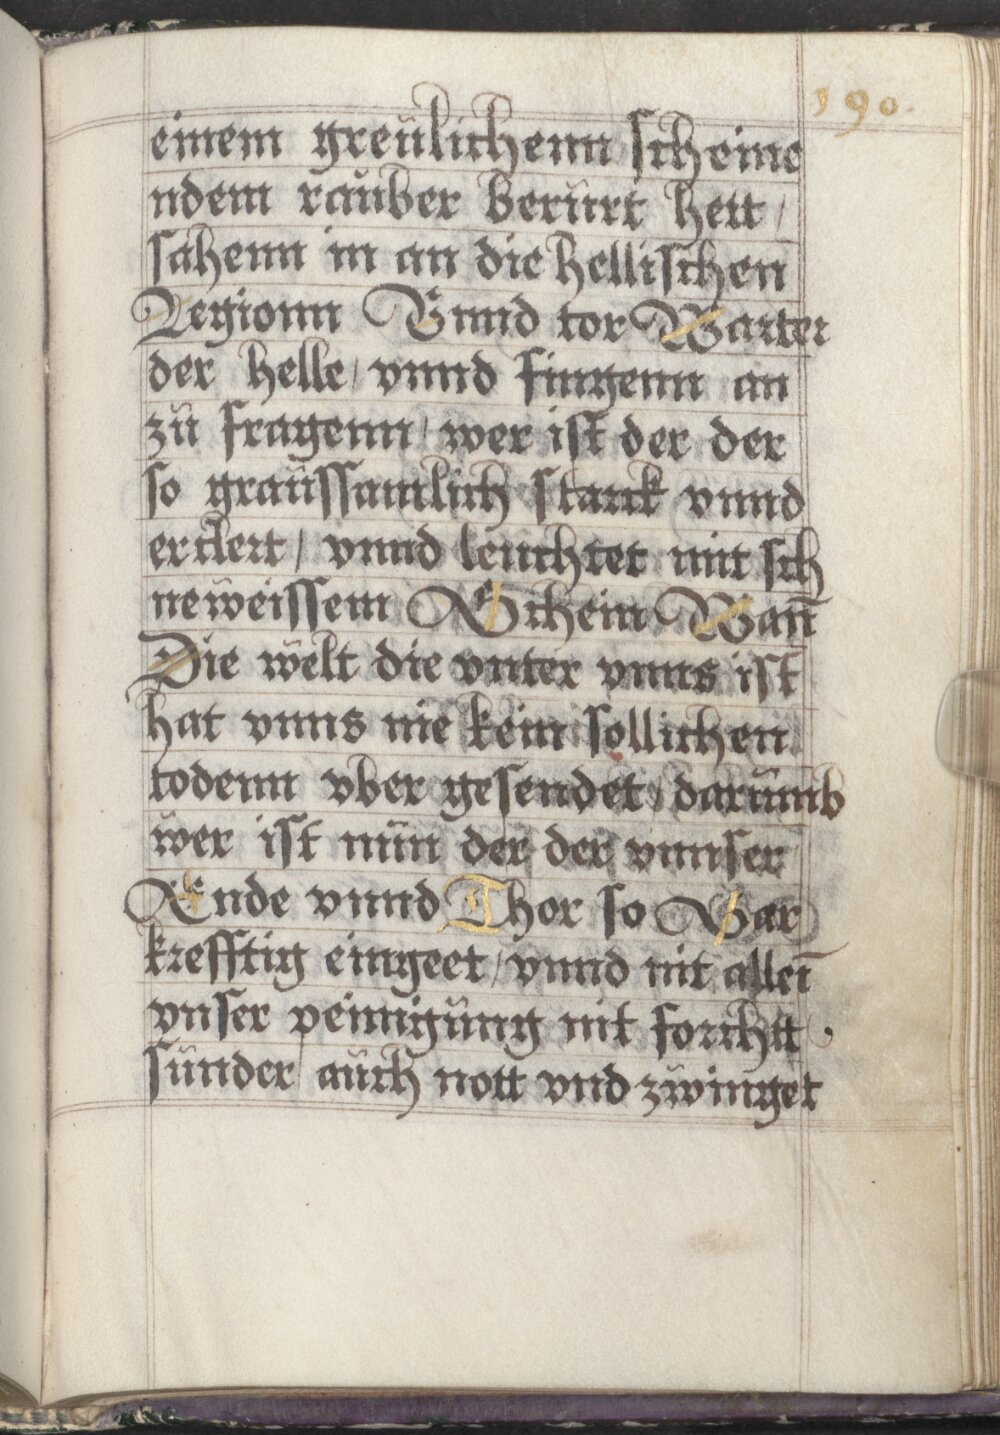 190.
einem greülichenn scheine
ndem raüber berürt hett /
sahenn in an die hellischen
Legionn Vnnd tor Warter
der helle / vnnd fingenn an
zü fragenn / wer ist der der
so graüssamlich starck vnnd
erclert / vnnd leuchtet mit sch
neweissem Schein Wan̄
Die welt die vnter vnns ist
hat vnns nie kein sollichen
todenn vber gesendet / darümb
wer ist nün der der vnnser
Ende vnnd Thor so War
krefftig eingeet / vnnd nit allein̄
vnser peinigüng nit forchtt
sünder aüch nott vnd zwinget